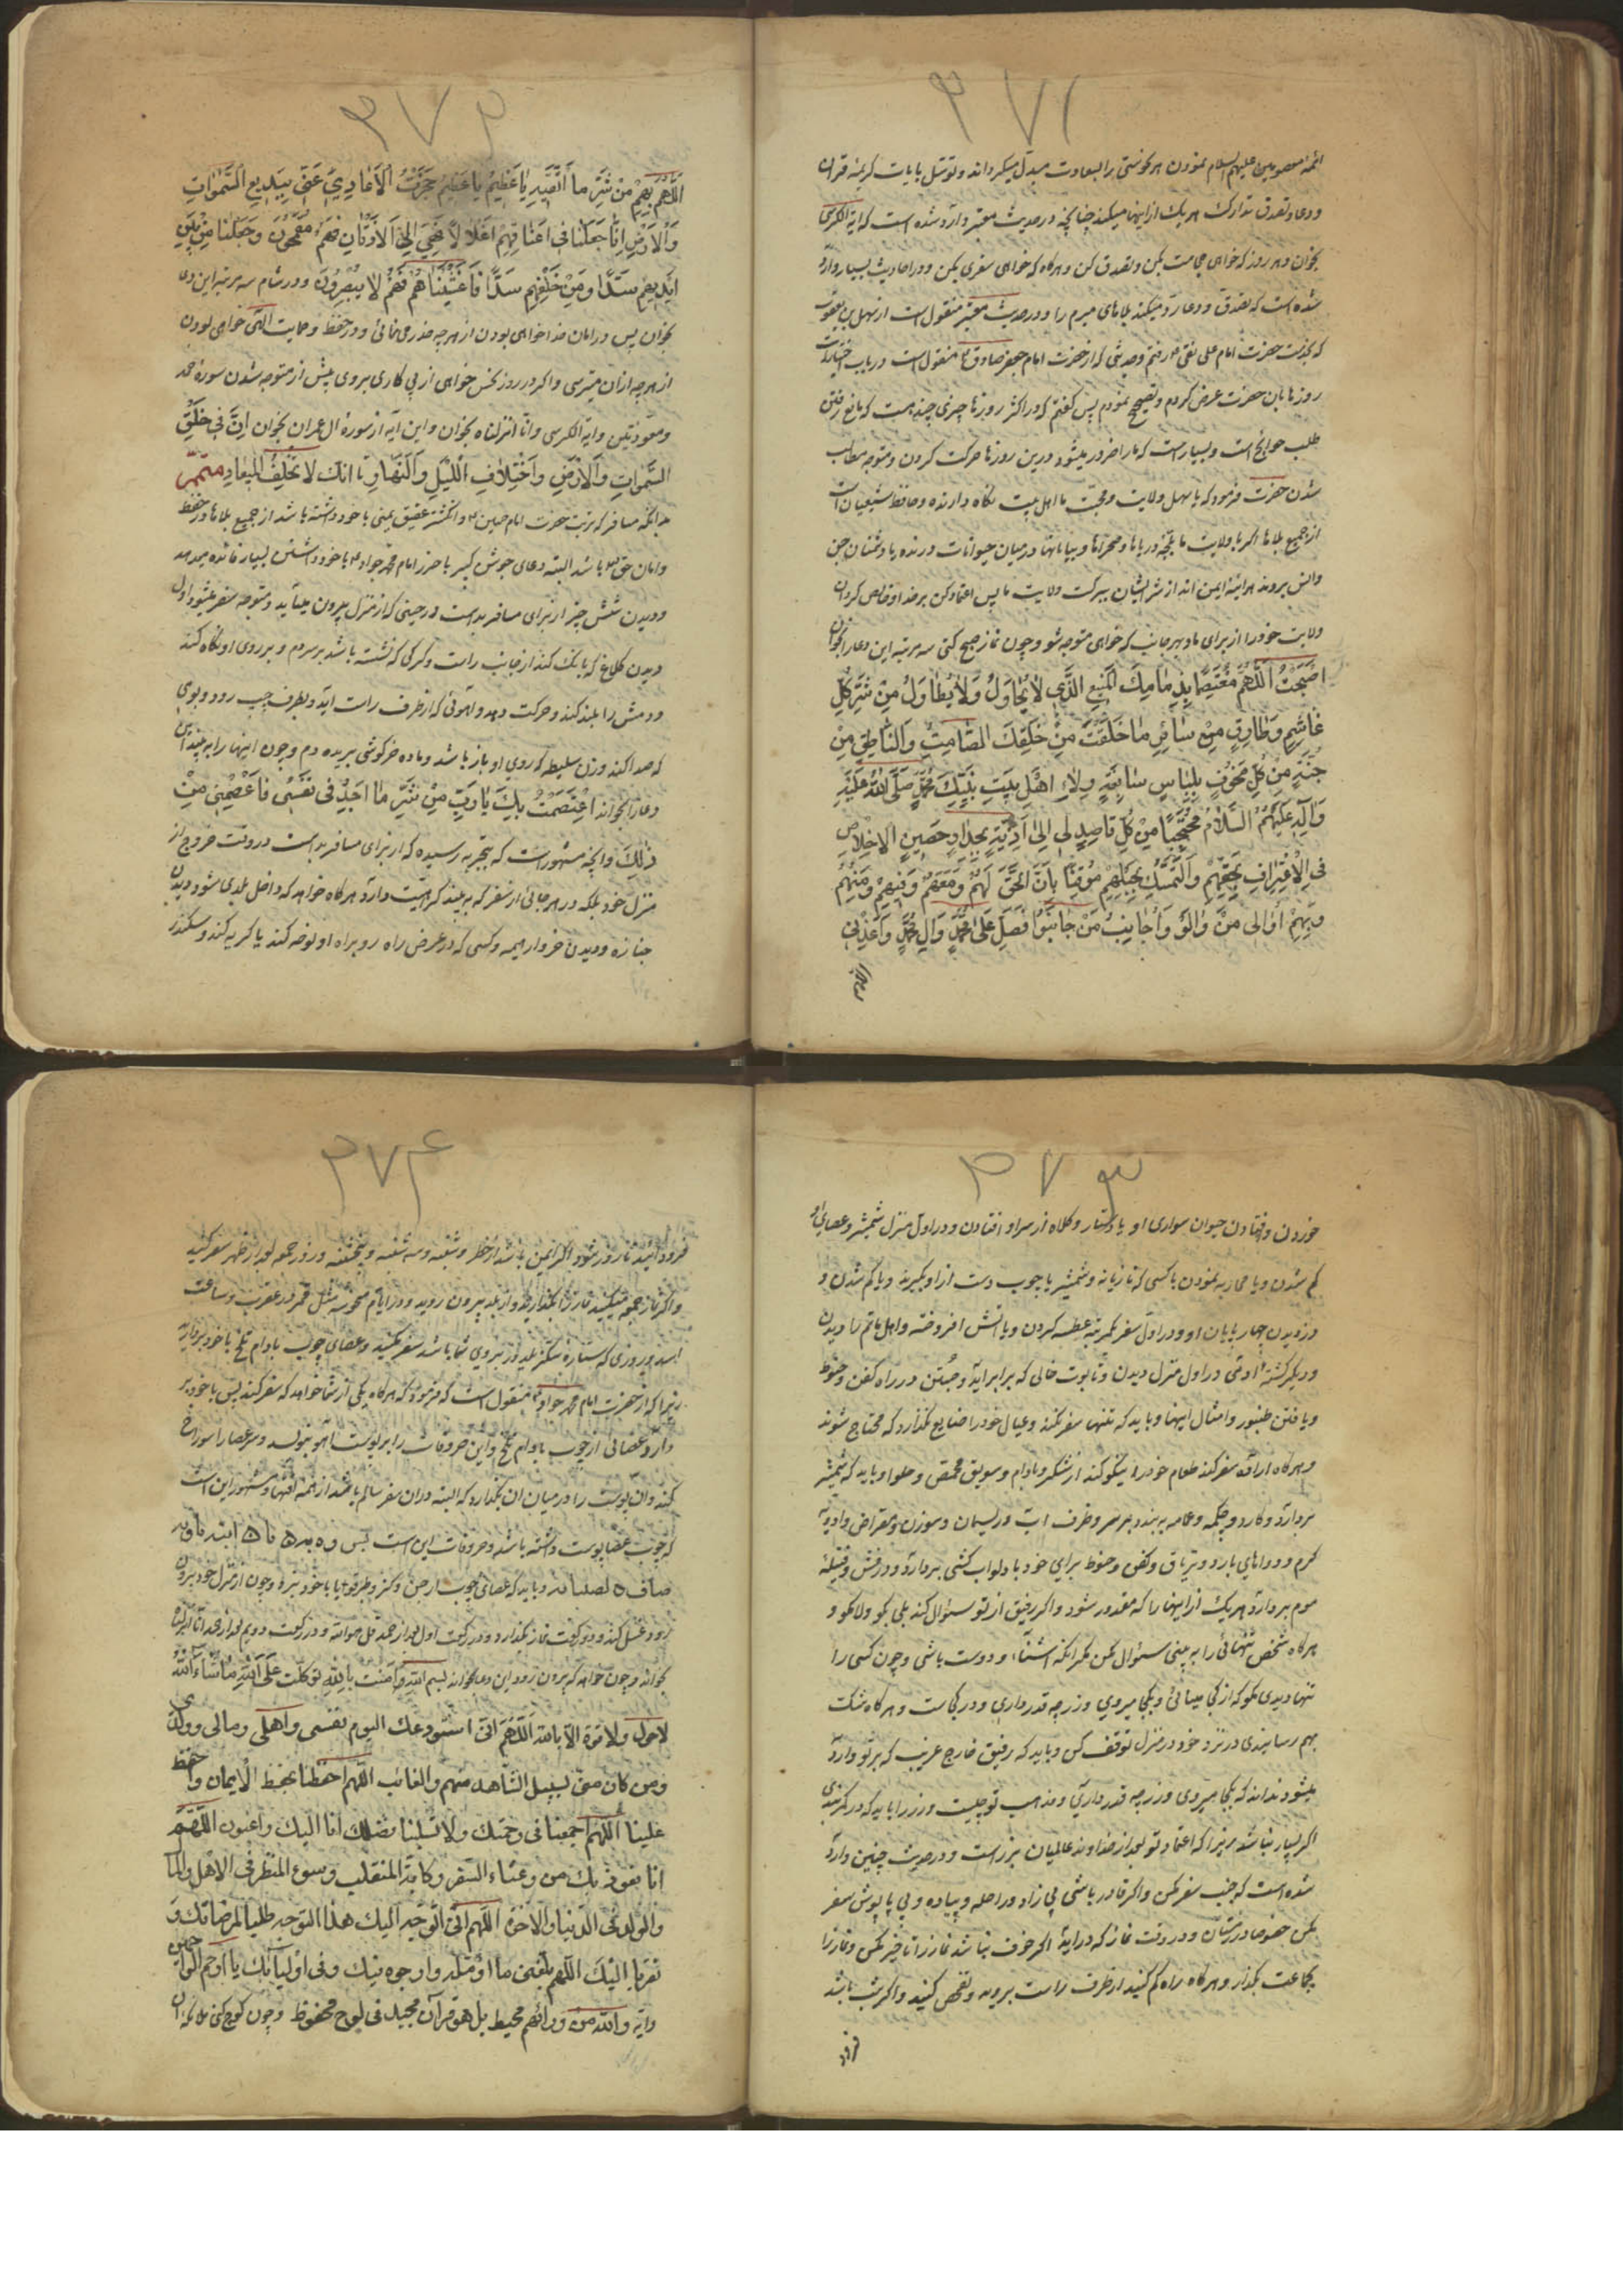 ۳۷۱
ائمه معصومین علیهم السلام نمودن هر نحوستی را بسعادت مبدل میکرداند و توسّل بایات کریمه قران
و دعا و تصدق تدارک هر یک از اینها میکند چنانچه در حدیث معتبر وارد شده است که ایة الکرسی
بخوان و هر روز که خواهی حجامت بکن و تصدق کن و هرکاه که خواهی سفری بکن و در احادیث بسیار وارد
شده است که تصدّق و دعا رد میکند بلاهای مبرم را و در حدیث معتبر منقول است از سهل بن یعقوب
که بخدمت حضرت امام علی نقی ع رفتم و حدیثی که از حضرت امام جعفر صادق ع منقول است در باب اختیارات
روزها بان حضرت عرض کردم و تصحیح نمودم پس کفتم که در اکثر روزها چیزی چند هست که مانع رفتن
طلب حوایج است و بسیار است که ما را ضرور میشود درین روزها حرکت کردن و متوجه مطالب
شدن حضرت فرمود که یا سهل ولایت و محبّت ما اهل بیت نکاه دارنده و حافظ شیعیان است
از جمیع بلاها اکر با ولایت ما بلجّه دریاها و صحراها و بیابانها در میان حیوانات درنده یا دشمنان جن
و انس بروند هراینه ایمن اند از شر ایشان ببرکت ولایت ما پس اعتماد کن بر خدا و خالص کردان
ولایت خود را از برای ما و بهر جانب که خواهی متوجه شو و چون نماز صبح کنی سه مرتبه این دعا را بخوان
اَصْبَحْتُ اَللّهُمَّ مُعْتَصِمًا بِذِمٰامِكَ الْمَنیعِ الَّذی لاٰ یُحٰاوَلُ وَلاٰ یُطٰاوَلُ مِنْ شَرِّ كُلِّ
غٰاشِمٍ وَطٰارِقٍ مِنْ سٰائِرِ مٰا خَلَقْتَ مِنْ خَلْقِكَ الصّٰامِتِ وَالنّٰاطِقِ مِنْ
جُنَّةٍ مِنْ كُلِّ مَخُوْفٍ بِلِبٰاسٍ سٰابِغَةٍ وِلاٰءِ اَهْلِ بَیْتِ نَبِیِّكَ مُحَمَّدٍ صَلَّی اللهُ عَلَیْهِ
وَاٰلِهِ عَلَیْهِمُ السَّلاٰمُ مُحْتَجِبًا مِنْ كُلِّ قٰاصِدٍ لی اِلیٰ اَذِیَّةٍ بِجِدٰارٍ حَصینٍ الاِخْلاٰصِ
فِی الْاِعْتِرٰافِ بِحَقِّهِمْ وَالتَّمَسُّكِ بِحَبْلِهِمْ مُوقِنًا بِاَنَّ الْحَقَّ لَهُمْ وَمَعَهُمْ وَفیهِمْ وَمِنْهُمْ
وَبِهِمْ اُوٰالی مَنْ وٰالَوْا وَاُجٰانِبُ مَنْ جٰانَبُوا فَصَلِّ عَلیٰ مُحَمَّدٍ وَاٰلِ مُحَمَّدٍ وَاَعِذْنی
۳۷۲
اَللّهُمَّ بِهِمْ مِنْ شَرِّ مٰا اَتَّقیهِ یٰا عَظیمُ یٰا عَظیمُ حَجَزْتُ الْاَعٰادِیَ عَنّی بِبَدیعِ السَّمٰوٰاتِ
وَالْاَرْضِ اِنّٰا جَعَلْنٰا فی اَعْنٰاقِهِمْ اَغْلاٰلاً فَهِیَ اِلَی الْاَذْقٰانِ فَهُمْ مُقْمَحُونَ وَجَعَلْنٰا مِنْ بَیْنِ
اَیْدیهِمْ سَدًّا وَمِنْ خَلْفِهِمْ سَدًّا فَاَغْشَیْنٰاهُمْ فَهُمْ لاٰ یُبْصِرُونَ و در شام سه مرتبه این دعا
بخوان پس در امان خدا خواهی بودن از هر چه حذر می نمائی و در حفظ و حمایت الهی خواهی بودن
از هر چه از ان میترسی و اکر در روز نحس خواهی از پی کاری بروی پیش از متوجه شدن سوره حمد
و معوّذتین و ایة الکرسی و انّا انزلناه بخوان و این ایه از سوره ال عمران بخوان اِنَّ فی خَلْقِ
السَّمٰوٰاتِ وَالْاَرْضِ وَاخْتِلاٰفِ الَّلیْلِ وَالنَّهٰارِ تا اِنَّكَ لاٰ تُخْلِفُ الْمیعٰادِ متمم
بدانکه مسافر که تربت حضرت امام حسین ع و انکشتر عقیق یمنی با خود داشته باشد از جمیع بلاها در حفظ
و امان حق تع باشد البته دعای جوشن کبیر یا حرز امام محمد جواد ع با خود داشتن بسیار فائده میدهد
و دیدن شش چیز از برای مسافر بد است در حینی که از منزل بیرون میآید و متوجه سفر میشود اول
دیدن کلاغ که بانک کند از جانب راست و کرکی که نشسته باشد بر سر دم و بر روی او نکاه کند
و دمش را بلند کند و حرکت دهد و اهوئی که از طرف راست آید و بطرف چپ رود و بومی
که صدا کند و زن سلیطه که روی او باز باشد و ماده خر کوشی بریده دم و چون اینها را به بیند این
دعا را بخواند اِعْتَصَمْتُ بِكَ یٰا رَبِّ مِنْ شَرِّ مٰا اَجِدُ فی نَفْسی فَاعْصِمْنی مِنْ
ذٰلِكَ و انچه مشهور است که بتجربه رسیده که از برای مسافر بد است در وقت خروج از
منزل خود بلکه در هر جائی از سفر که به بیند کراهیت دارد هرکاه خواهد که داخل بلدی شود دیدن
جنازه و دیدن خروار هیمه و کسی که در عرض راه رو براه او نوحه کند یا کریه کند و سکندر
۳۷۳
خوردن و افتادن حیوان سواری او یا دستار و کلاه از سر او افتادن و در اول منزل شمشیر و عصای او
کم شدن و یا محاربه نمودن با کسی که تازیانه و شمشیر یا چوب دست از او بکیرند و یا کم شدن و
دزدیدن چهار پایان او و در اول سفر یکمرتبه عطسه کردن و یا اتش افروخته و اهل ماتم را دیدن
و دیکر کشته ادمی در اول منزل دیدن و تابوت خالی که برابر آید و جُستن در راه کفن و حنوط
و یافتن طنبور و امثال اینها و باید که تنها سفر نکند و عیال خود را ضایع نکذارد که محتاج شوند
و هرکاه اراده سفر کند طعام خود را نیکو کند از شکر و بادام و سویق محمّص و حلوا و باید که شمشیر
بردارد و کارد و چکمه و عمامه به بندد بر سر و ظرف اب و ریسمان و سوزن و مقراض و ادویه
کرم و دواهای بارد و تریاق و کفن و حنوط برای خود با دلو اب کشی بردارد و درفش و فتیله
موم بردارد هر یک از اینها را که مقدور شود و اکر رفیق از تو سئوال کند بلی بکو و لا مکو و
هرکاه شخص تنهائی را به بینی سئوال مکن مکر انکه اشنا و دوست باشی و چون کسی را
تنها دیدی مکو که از کجا میائی و بکجا میروی و زر چه قدر داری و در کجاست و هرکاه شک
بهم رسانیدی در نزد خود در منزل توقف کن و باید که رفیق خارج غریب که بر تو وارد
میشود نداند که بکجا میروی و زر چه قدر داری و مذهب تو چیست و زر را باید که در کمر بندی
اکر بسیار نباشد زیرا که اعتماد تو بعد از خداوند عالمیان بزر است و در حدیث چنین وارد
شده است که جنب سفر مکن و اکر قادر باشی بی زاد و راحله و پیاده و بی پاپوش سفر
مکن خصوصا در زمستان و در وقت نماز که در اید اکر خوف نباشد نماز را تاخیر مکن و نماز را
بجماعت بکذار و هرکاه راه کم کنید از طرف راست بروید و تفحص کنید و اکر شب باشد
فرود
۳۷۴
فرود ائید تا روز شود اکر ایمن باشد از خطر و شنبه و سه شنبه و پنجشنبه و روز جمعه بعد از ظهر سفر کنید
و اکر نماز جمعه میکنید نماز را بکذارید و از بلد بیرون روید و در ایام منحوسه مثل قمر در عقرب و ساعت
زیرا که از حضرت امام محمد جواد ع منقول است که فرمود که هرکاه یکی از شما خواهد که سفر کند پس با خود بر
دارد عصائی از چوب بادام تلخ و این حروفات را بر پوست اهو بنویسد و سر عصا را سوراخ
کند و ان پوست را در میان ان بکذارد که البته در ان سفر سالم باشد از همه افتها و مشهور این است
رود غسل کند و دو رکعت نماز بکذارد و در رکعت اول بعد از حمد قل هو الله و در رکعت دویم بعد از حمد انّا انزلناه
بخواند و چون خواهد که بیرون رود این دعا بخواند بسم الله اٰمَنْتُ بِاللهِ تَوَكَّلْتُ عَلَی اللهِ مٰا شٰاءَ اللهُ
لا حول ولا قوة الّا بالله اَللّهُمَّ اِنّی اَسْتَوْدِعُكَ الیوم نفسی واهلی ومالی وولدی
ومن كان منّی بسبیل الشّاهد منهم والغائب اللّهم احفظنا بحفظ الایمان واحفظ
علینا اللّهم اجمعنا فی رحمتك ولا تسلبنا فضلك انا الیك راغبون اللّهمّ
انا نعوذ بك من وعثاء السّفر وكابة المنقلب وسوء المنظر فی الاهل والمال
والولد فی الدّنیا والاخرة اللّهم انّی اتوجّه الیك هذا التوجّه طلبا لمرضاتك و
تقربا الیْكَ اللّهم بلّغنی ما اؤمّله وارجوه فیك وفی اولیائك یا ارحم الرّاحمین
وایه والله من ورائهم محیط بل هو قرآن مجید فی لوح محفوظ و چون کوچ کنی